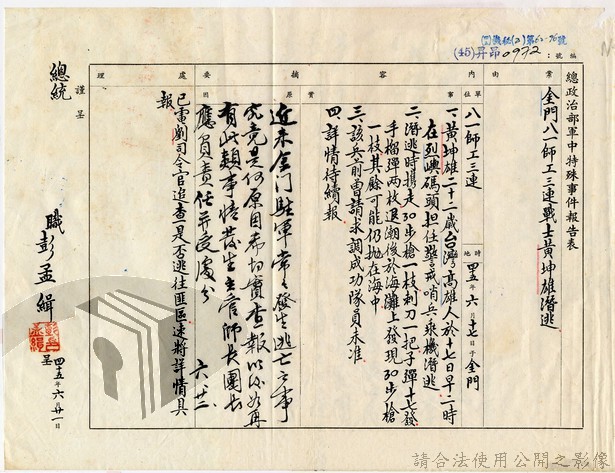 (45)昇昂0972
編號：
總政治部軍中特殊事件報告表
案由
金門八一師工三連戰士黃坤雄潛逃
單位
八一師工三連
時地
四五年六月十七日于金門
內容摘要
事實
一、黃坤雄二十二歲台灣高雄人於十七日早二時
在列嶼碼頭担任警戒哨兵乘機潛逃
二、潛逃時携走30步槍一枝刺刀一把子彈十七發
手榴彈兩枚退潮後於海灘上發現30步槍
一枝其餘可能仍拋在海中
三、該兵前曾請求調成功隊員未准
四、詳情待續報
原因
近來金门駐軍常々發生逃亡之事
究竟是何原因希切實查報以後如再
有此類事情發生主官師長團長
應負責任并受處分
六、廿二
處理
已電劉司令官追查是否逃往匪區速將詳情具
報
謹呈
總統
職彭孟緝
呈
四十五年六月廿一日
請合法使用公開之影像